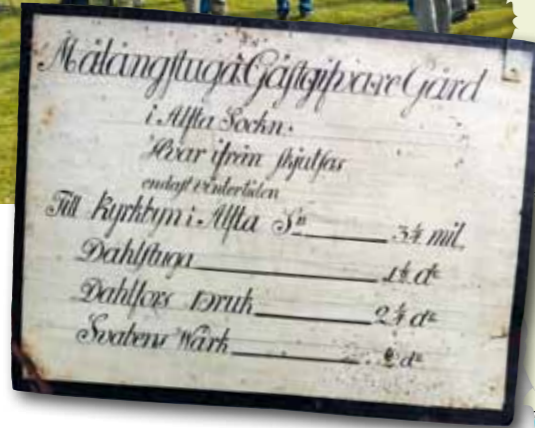 Målångstuga Gästgifvare Gård
i Alfta Sockn.
Hvar ifrån skjutsas
endast vintertiden
Till Kyrkbyn i Alfta Sn 3¼ mil.
Dahlstuga 1½ do
Dahlfors Bruk 2¼ do
Svabens Wärk do